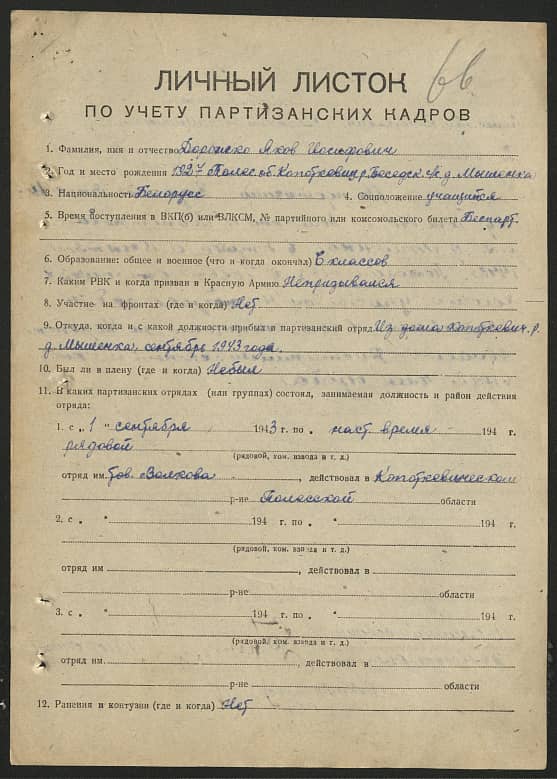 66
ЛИЧНЫЙ ЛИСТОК
ПО УЧЕТУ ПАРТИЗАНСКИХ КАДРОВ
1. Фамилия, имя и отчество Доропско Яков Иосифович
2. Год и место рождения 1927 Полес. об. Копаткевич р. Беседск с/с д. Мышенка
3. Национальность Белорусс 4. Соцположение учащийся
5. Время поступления в ВКП(б) или ВЛКСМ, № партийного или комсомольского билета Беспарт.
6. Образование: общее и военное (что и когда окончил) 6 классов
7. Каким РВК и когда призван в Красную Армию Непризывался
8. Участие на фронтах (где и когда) Нет
9. Откуда, когда и с какой должности прибыл в партизанский отряд Из дома Копаткевич. р.
д. Мышенка, сентябрь 1943 года.
10. Был ли в плену (где и когда) Небыл
11. В каких партизанских отрядах (или группах) состоял, занимаемая должность и район действия
отряда:
1. с „1 " сентября 1943 г. по " наст. время 194 г.
рядовой
(рядовой, ком. взвода и т. д.)
отряд им. тов. Волкова , действовал в Копаткевическом
р-не Полесской области
2. с „ " 194 г. по „ " 194 г.
(рядовой, ком. взвода и т. д.)
отряд им , действовал в
р-не области
3. с „ " 194 г. по „ " 194 г.
(рядовой, ком. взвода и т. д.)
отряд им. , действовал в
р-не области
12. Ранения и контузии (где и когда) Нет